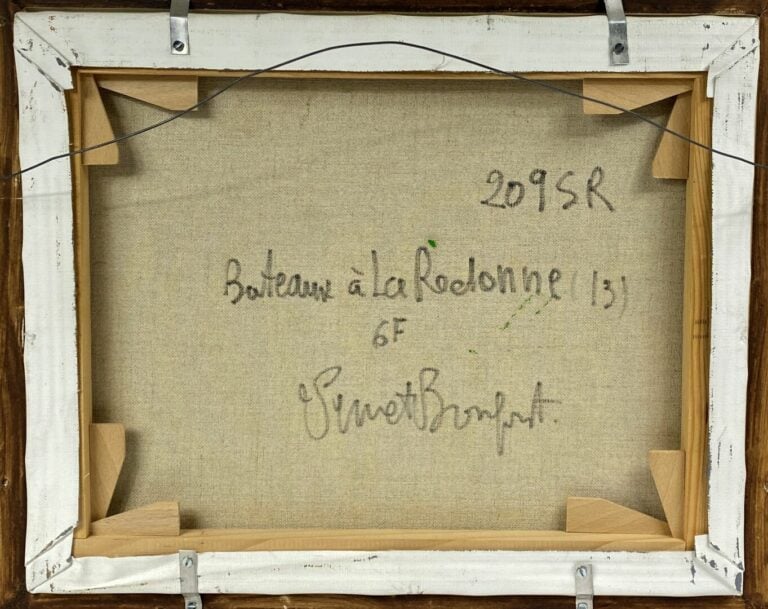 209SR
Bateaux à La Redonne (13)
6F
Vernet Bonfort.